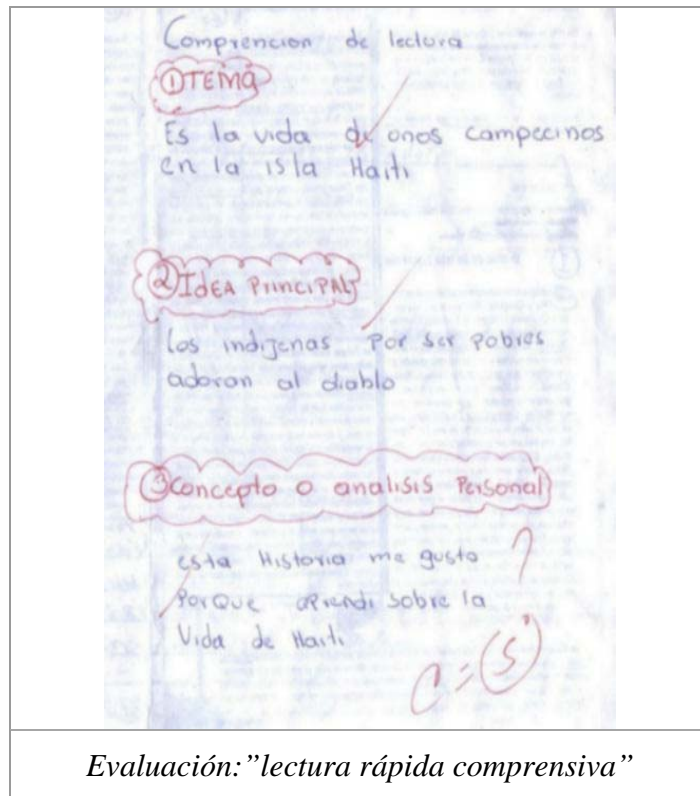 Comprencion de lectura
① TEMA
Es la vida de unos campecinos
en la isla Haiti
② IDEA PRINCIPAL
los indijenas por ser pobres
adoran al diablo
③ concepto o analisis Personal
esta Historia me gusto ?
PorQue aprendi sobre la
Vida de Haiti
C = (S)
Evaluación:”lectura rápida comprensiva”